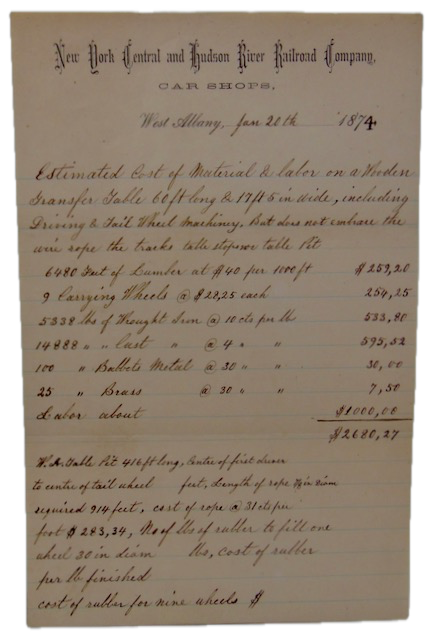 New York Central and Hudson River Railroad Company,
CAR SHOPS,
West Albany, Jan 20th 1874
Estimated Cost of Material & labor on a Wooden
Transfer Table 60 ft long & 17 ft 5 in wide, including
Driving & Tail Wheel Machinery, But does not embrace the
wire rope the tracks table stops nor table Pit
6480 Feet of Lumber at $40 per 1000 ft $259,20
9 Carrying Wheels @ $28,25 each 254,25
5338 lbs of Wrought Iron @ 10 cts per lb 533,80
14888 " " Cast " @ 4 " " 595,52
100 " Babbits Metal @ 30 " " 30,00
25 " Brass @ 30 " " 7,50
Labor about $1000,00
$2680,27
W.A. Table Pit 416 ft long, Centre of first driver
to centre of tail wheel feet, Length of rope in diam
required 914 feet, cost of rope @ 31 cts per
foot $283,34, No of lbs of rubber to fill one
wheel 30 in diam lbs, cost of rubber
per lb finished
cost of rubber for nine wheels $